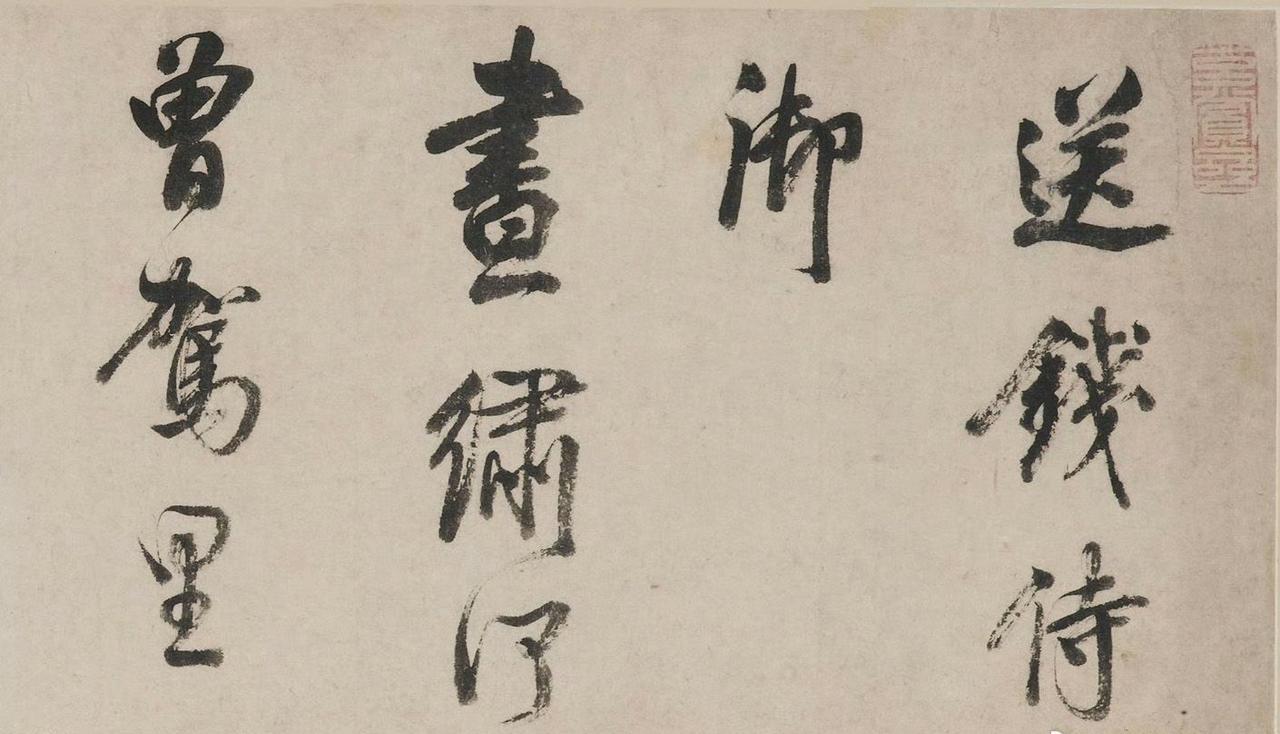 送錢侍
御
晝繡何
曾駕里